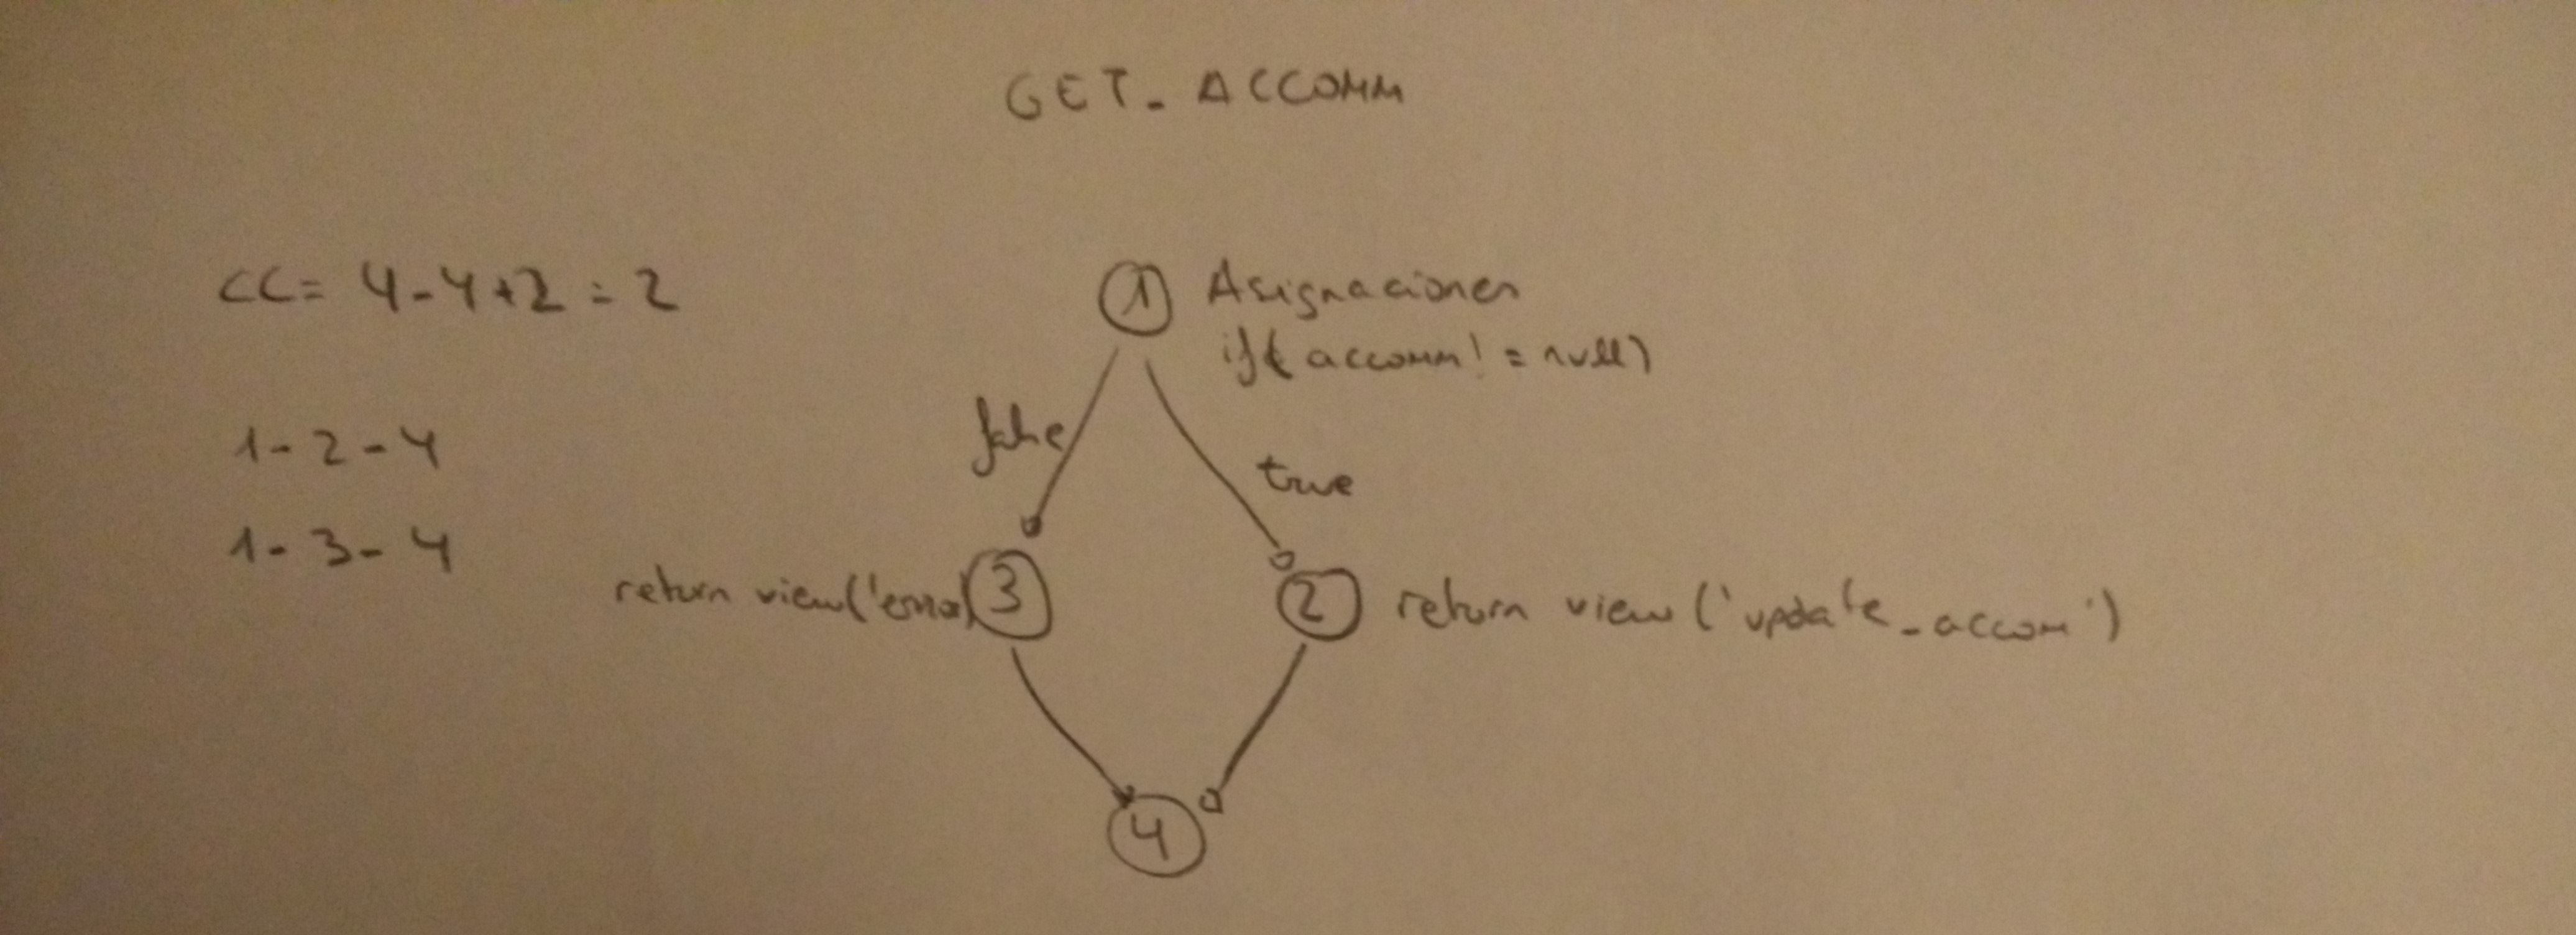 GET_ACCOMM
CC= 4-4+2 = 2
1 Asignaciones
if( accomm! = null)
false
true
1-2-4
1-3-4
return view('error) 3
2 return view ('update_accom')
4